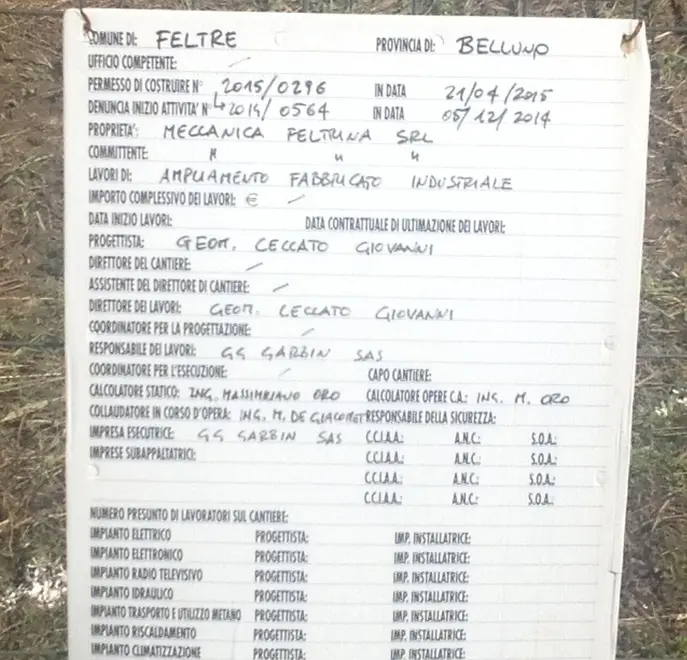 COMUNE DI: FELTRE PROVINCIA DI: BELLUNO
UFFICIO COMPETENTE: /
PERMESSO DI COSTRUIRE N° 2015/0296 IN DATA 21/04/2015
DENUNCIA INIZIO ATTIVITA' N° 2014/0564 IN DATA 05/12/2014
PROPRIETA': MECCANICA FELTRINA SRL
COMMITTENTE: " " "
LAVORI DI: AMPLIAMENTO FABBRICATO INDUSTRIALE
IMPORTO COMPLESSIVO DEI LAVORI: € /
DATA INIZIO LAVORI: DATA CONTRATTUALE DI ULTIMAZIONE DEI LAVORI:
PROGETTISTA: GEOM. CECCATO GIOVANNI
DIRETTORE DEL CANTIERE: /
ASSISTENTE DEL DIRETTORE DI CANTIERE: /
DIRETTORE DEI LAVORI: GEOM. CECCATO GIOVANNI
COORDINATORE PER LA PROGETTAZIONE: /
RESPONSABILE DEI LAVORI: GG GARBIN SAS
COORDINATORE PER L'ESECUZIONE: / CAPO CANTIERE:
CALCOLATORE STATICO: ING. MASSIMILIANO ORO CALCOLATORE OPERE C.A.: ING. M. ORO
COLLAUDATORE IN CORSO D'OPERA: ING. M. DE GIACOMET RESPONSABILE DELLA SICUREZZA:
IMPRESA ESECUTRICE: GG GARBIN SAS C.C.I.A.A.: A.N.C.: S.O.A.:
IMPRESE SUBAPPALTATRICI: C.C.I.A.A.: A.N.C.: S.O.A.:
C.C.I.A.A.: A.N.C.: S.O.A.:
C.C.I.A.A.: A.N.C.: S.O.A.:
NUMERO PRESUNTO DI LAVORATORI SUL CANTIERE:
IMPIANTO ELETTRICO PROGETTISTA: IMP. INSTALLATRICE:
IMPIANTO ELETTRONICO PROGETTISTA: IMP. INSTALLATRICE:
IMPIANTO RADIO TELEVISIVO PROGETTISTA: IMP. INSTALLATRICE:
IMPIANTO IDRAULICO PROGETTISTA: IMP. INSTALLATRICE:
IMPIANTO TRASPORTO E UTILIZZO METANO PROGETTISTA: IMP. INSTALLATRICE:
IMPIANTO RISCALDAMENTO PROGETTISTA: IMP. INSTALLATRICE:
IMPIANTO CLIMATIZZAZIONE PROGETTISTA: IMP. INSTALLATRICE: